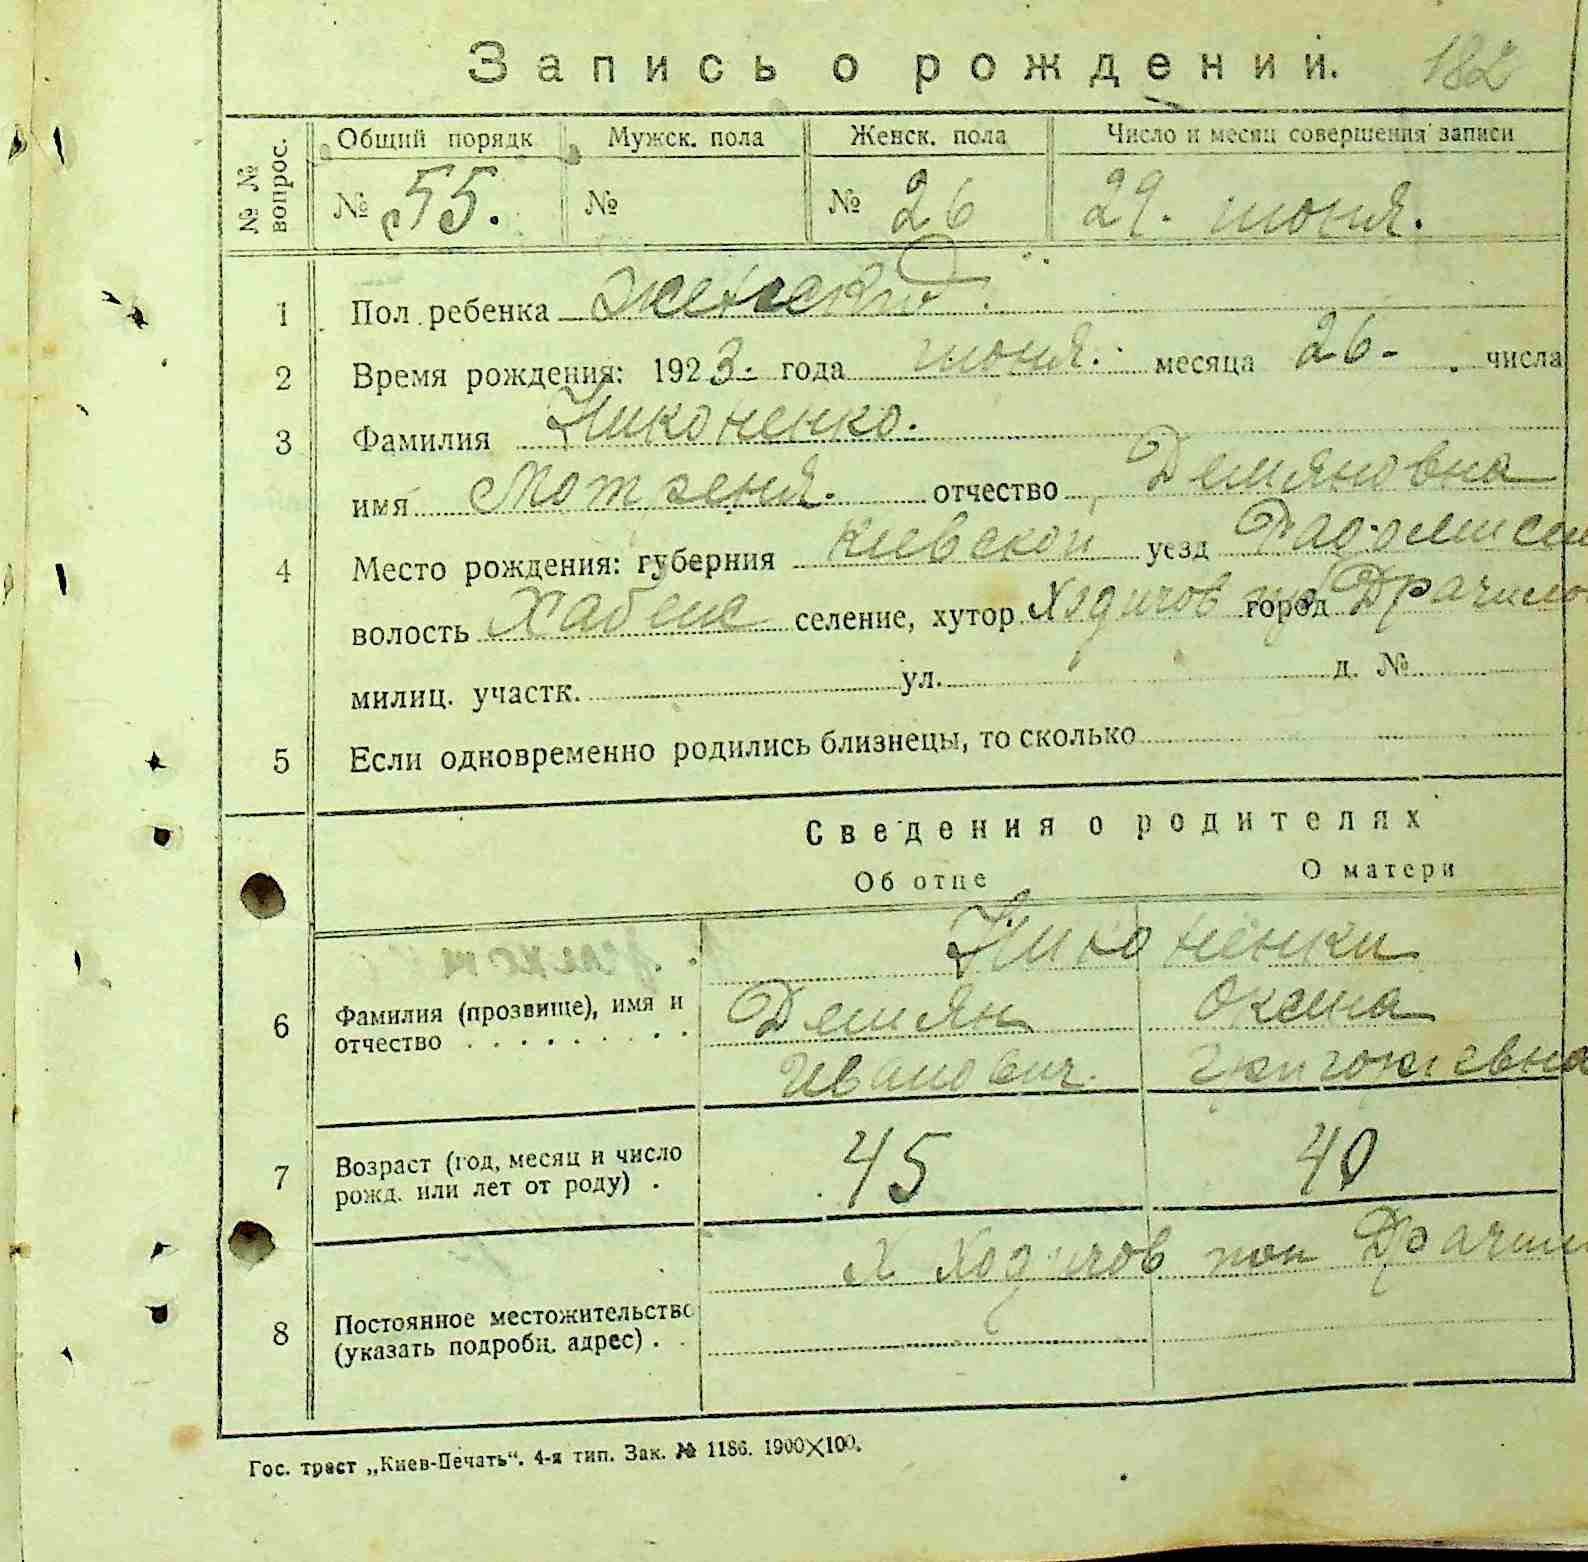 Запись о рождении. 182
№ № вопрос. Общий порядк Мужск. пола Женск. пола Число и месяц совершения записи
№ 55. № № 26 29. июня.
1 Пол ребенка женский
2 Время рождения: 1923. года июня. месяца 26. числа
3 Фамилия Никоненко.
имя Мотреня. отчество Демяновна
4 Место рождения: губерния Киевской уезд Радомисл
волость Хабенс селение, хутор Ходичов город Драчило
милиц. участк. ул. д. №
5 Если одновременно родились близнецы, то сколько
Сведения о родителях
Об отце О матери
Никоненки
6 Фамилия (прозвище), имя и отчество Демян Оксена
Иванович. Григориевна
7 Возраст (год, месяц и число рожд. или лет от роду) . 45 40
Х Ходичов Драчил
8 Постоянное местожительство (указать подробн. адрес) .
Гос. трест „Киев-Печать“. 4-я тип. Зак. № 1186. 1900×100.